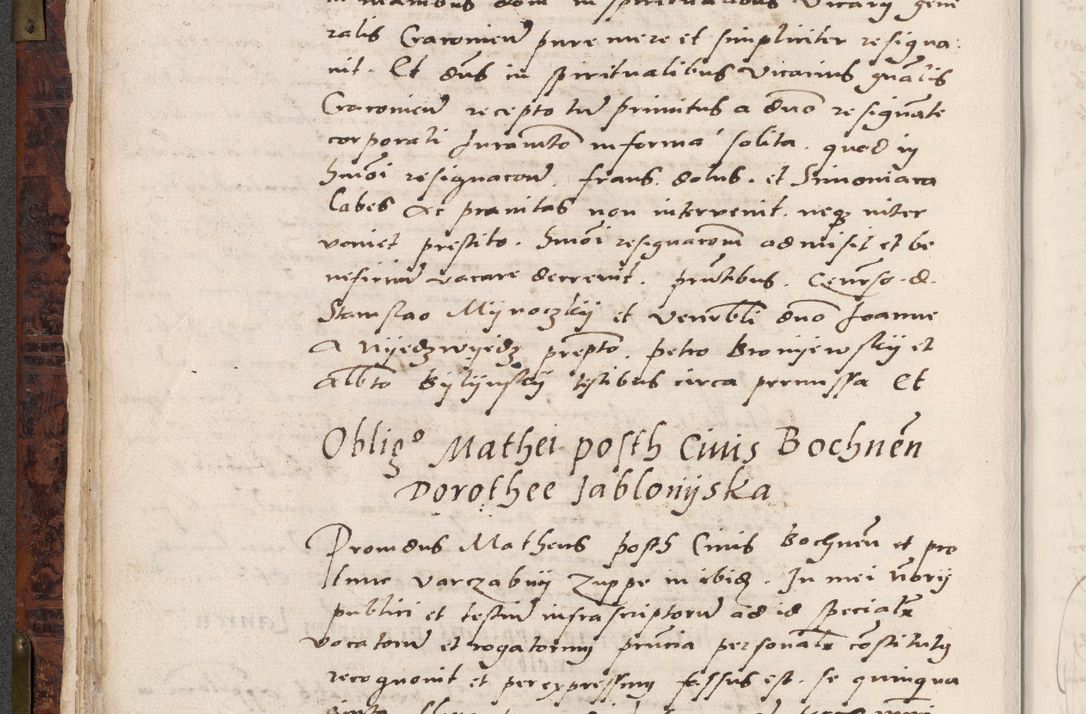 in manibus dom in spiritualibus Vicarij gene
ralis Cracovien pure mere et simpliciter resigna:
vit. Et dns in spiritualibus Vicarius gnalis
Cracovien recepto tn primitus a dno resignate
corporali Juramto in forma solita. quod in
hmoi resignacon. fraus. dolus. et Simoniaca
labes Ac pravitas non intervenit. neqz inter
veniet prestito. hmoi resignacom admisit et be
neficium vacare decrevit. pntibus. Genrso. d.
Stanislao Mijroczkij et Venrbli dno Joanne
A Nijedzwijedz prepto. petro Bronijewskij et
Albto Bijlijnskij testibus circa premissa Et
Obligo Mathei posth Civis Bochnen
Dorothee Jablonijska
Providus Matheus posth Civis Bochnen et pro
tunc Varczabnij Zuppe in ibid. In mei Norij
publici et testium infrascriptorum ad id special
vocatorum et rogatorum pncia personal constitutus
recognovit et per expressum fassus est. se quinqua